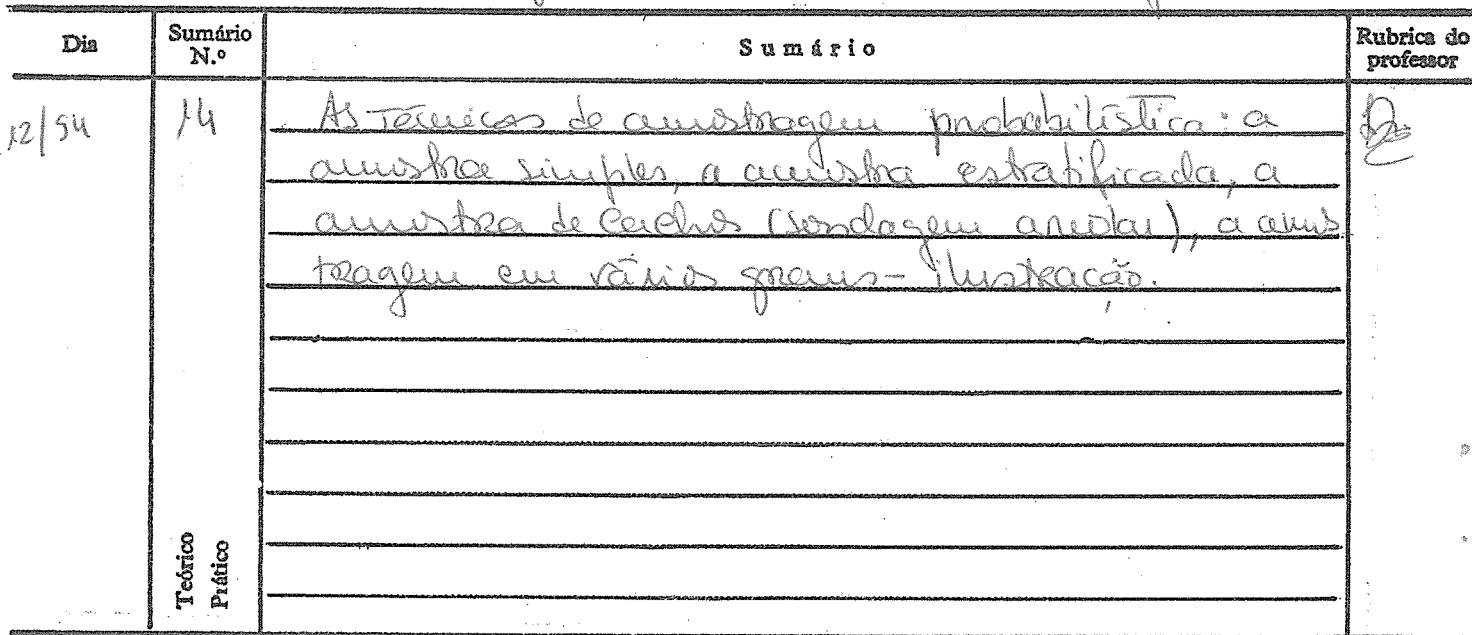 Dia
Sumário N.º
Sumário
Rubrica do professor
12/94
14
As Técnicas de amostragem probabilística: a
amostra simples, a amostra estratificada, a
amostra de cachos (sondagem areolar), a amos
tragem em vários graus - ilustração.
Teórico
Prático